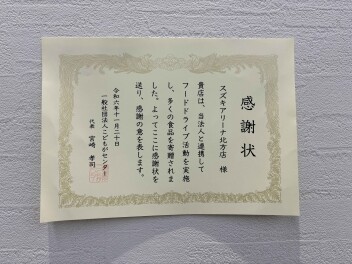 感謝状
スズキアリーナ北方店 様
貴店は、当法人と連携して
フードドライブ活動を実施
し、多くの食品を寄贈されま
した。よってここに感謝状を
送り、感謝の意を表します。
令和六年十一月二十日
一般社団法人こどもがセンター
代表 宮崎 孝司